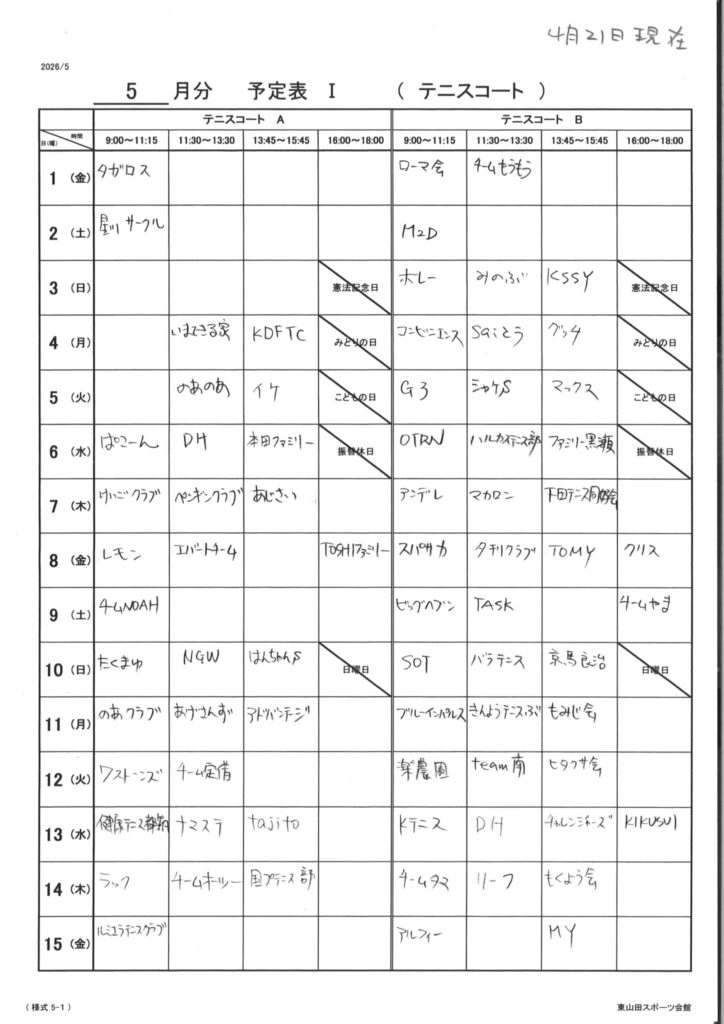 4月21日 現在
2026/5
5 月分 予定表 Ⅰ ( テニスコート )
テニスコート A テニスコート B
時間
日(曜) 9:00～11:15 11:30～13:30 13:45～15:45 16:00～18:00 9:00～11:15 11:30～13:30 13:45～15:45 16:00～18:00
1 (金) タガロス ローマ会 チームもうもう
2 (土) サークル M2D
3 (日) 憲法記念日 ホレー みのぶ KSSY 憲法記念日
4 (月) いまできる家 KDFTC みどりの日 コンビニエンス Saiとう グッチ みどりの日
5 (火) のあのあ イケ こどもの日 G3 シャケS マックス こどもの日
6 (水) ぱこーん DH 本田ファミリー 振替休日 OTRN ハルカステニス部 ファミリー黒瀬 振替休日
7 (木) けいごクラブ ペンギンクラブ あじさい アンデレ マカロン 下田テニス同好会
8 (金) レモン エバートチーム TOSHIファミリー スパサカ タチリクラブ TOMY クリス
9 (土) チームNOAH ビッグヘブン TASK チームやま
10 (日) たくまゆ NGW はんちゃんS 日曜日 SOT バラテニス 京馬良治 日曜日
11 (月) のあクラブ あげさんず アドバンテージ ブルーインパルス きんようテニスぶ もみじ会
12 (火) ワストーンズ チーム定借 楽農園 team南 ヒタクサ会
13 (水) 健康テニス ナマステ tajito Kテニス DH チャレンジャーズ KIKUSUI
14 (木) ラック チームオーツー 国プテニス部 チームタマ リーフ もくよう会
15 (金) ルミエラテニスクラブ アルフィー MY
(様式 5-1) 東山田スポーツ会館